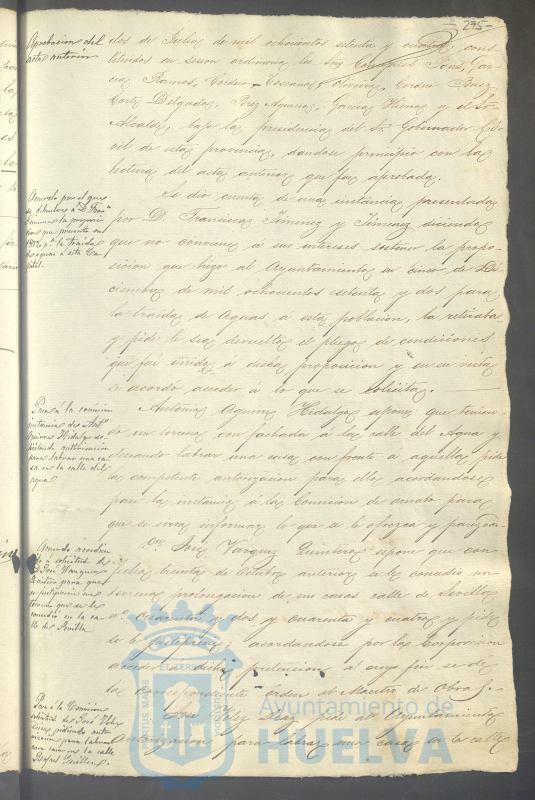 295
Aprobacion del
acta anterior
dos de Julio de mil ochocientos setenta y cuatro, cons-
tituidos en sesion ordinaria los Sres Concejales Pons, Gar-
cia Ramos, Cordero, Toscano, Oliveira, Cordero Baez
Cortes Delgado, Perez Aquino, Garcia y el Sr
Alcalde, bajo la presidencia del Sr Gobernador Ci-
vil de esta provincia, dandose principio con la
lectura del acta anterior que fue aprobada.
Acuerdo por el que
se devuelve a D. Franco
Jimenez la proposicion
que presento en
1872 pa la traida
de aguas a esta Ca-
pital.
Se dió cuenta de una instancia presentada
por D. Francisco Jimenez y Jimenez diciendo
que no conviene á sus intereses sostener la propo-
sicion que hizo al Ayuntamiento en cinco de Di-
ciembre de mil ochocientos setenta y dos para
la traida de aguas a esta poblacion, la retiraba
y pide le sea devuelto el pliego de condiciones
que fué unido á dicha proposicion y en su vista
se acordó acceder á lo que se solicita.
Pasa á la comision
instancia de Anto
Aquino Hidalgo so-
licitando autorizacion
para labrar una ca-
sa en la calle del
agua
Antonio Aquino Hidalgo espone que tenien-
do un terreno con fachada á la calle del Agua y
deseando labrar una casa con frente a aquella pide
la competente autorizacion para ello, acordandose
pase la instancia á la Comision de ornato para
que se sirva informar lo que se le ofrezca y parezca.
Acuerdo accedien-
do a solicitud de
D. José Vazquez
Quintero para que
se postiguen un
terreno que se le
concedió en la ca-
lle de Sevilla
Don José Vazquez Quintero espone que con
fecha treinta de Octubre anterior se le concedió un
terreno prolongacion de sus casas calle de Sevilla
nos cuarenta y dos y cuarenta y cuatro y pide
se le acordandose por la Corporacion
acceder a dicha pretension a cuyo fin se dé
la correspondiente orden al Maestro de Obras.
Pasa á la Comision
solicitud de José Velez
Diaz pidiendo auto-
rizacion para labrar
una casa en la calle
Rafael Guillen
José Velez Diaz pide al Ayuntamiento
autorizacion para labrar una casa en la calle
PORTUS MARIS
ET TERRAE
CUSTODIA
Ayuntamiento de
HUELVA